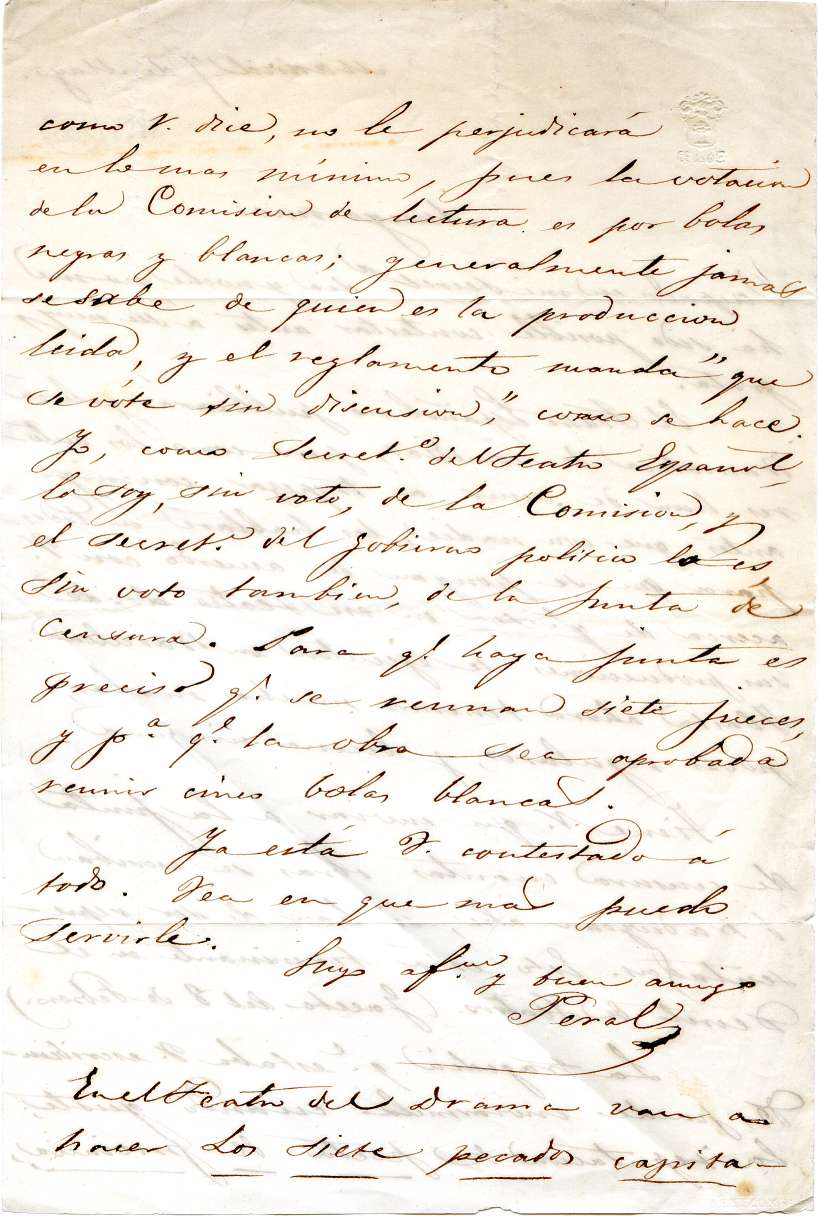 como V. dice, no le perjudicará
en lo mas mínimo, pues la votacion
de la Comision de lectura es por bolas
negras y blancas; generalmente jamas
se sabe de quien es la produccion
leida, y el reglamento manda "que
se vóte sin discusion," como se hace.
Yo, como Secret.º del Teatro Español,
lo soy, sin voto, de la Comision, y
el secret.º del gobierno politico lo es,
sin voto tambien, de la Junta de
Censura. Para q.e haya junta es
preciso q.e se reunan siete jueces,
y p.a q.e la obra sea aprobada
reunir cinco bolas blancas.
Ya está V. contestado á
todo. Vea en que más puedo
servirle.
Suyo af.mo y buen amigo
Peral
En el Teatro del Drama van a
hacer Los siete pecados capita-